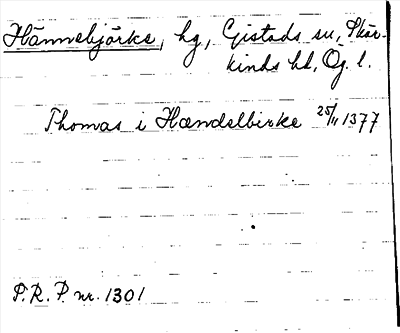 Hännebjörke, hg, Gistads sn, Skär-
kinds hd, Ög. l.
Thomas i Hændelbirke 25/11 1377
P. R. P. nr. 1301